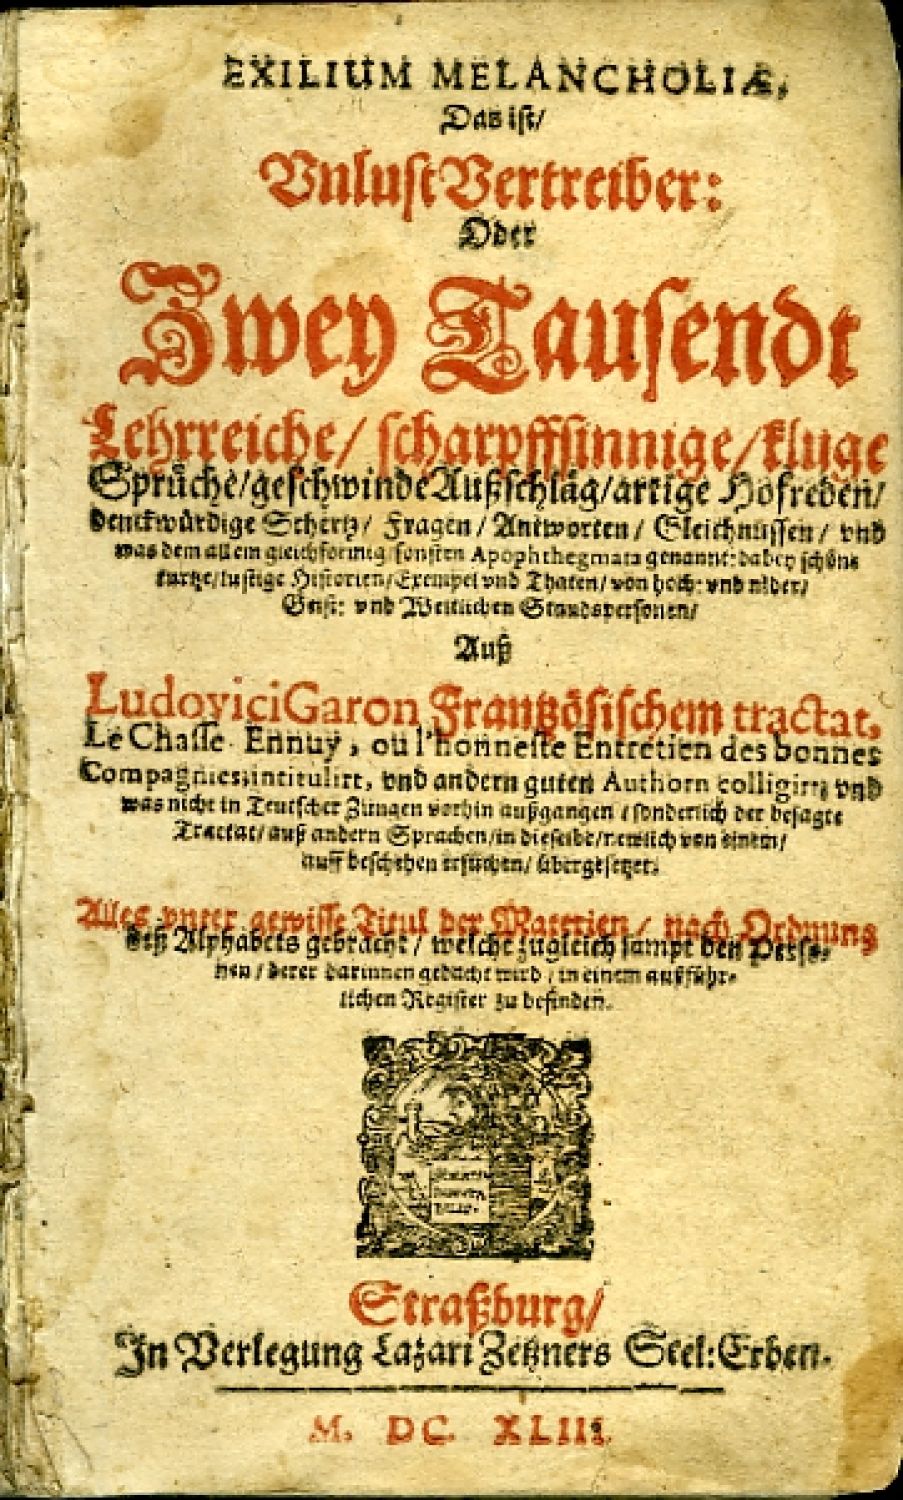 EXILIUM MELANCHOLIÆ,
Das ist/
Vnlust Vertreiber:
Oder
Zwey Tausendt
Lehrreiche/ scharpffsinnige/ kluge
Sprüche/ geschwinde Außschläg/ artige Hofreden/
denckwürdige Schertz/ Fragen/ Antworten/ Gleichnussen/ vnd
was dem allem gleichförmig/ sonsten Apophthegmata genannt: dabey schöne
kurtze/ lustige Historien/ Exempel vnd Thaten/ von hoch: vnd nider/
Geist: vnd Weltlichen Standspersonen/
Auß
Ludovici Garon Frantzösischem tractat,
Le Chasse Ennuy, ou l'honneste Entretien des bonnes
Compagnies intitulirt, vnd andern guten Authorn colligirt; vnd
was nicht in Teutscher Zungen vorhin außgangen / sonderlich der besagte
Tractat/ auß andern Sprachen/ in dieselbe/ newlich von einem/
auff beschehen ersuchen/ übergesetzet.
Alles vnter gewisse Titul der Materien/ nach Ordnung
deß Alphabets gebracht/ welche zugleich sampt den Perso-
nen/ derer darinnen gedacht wird/ in einem außführ-
lichen Register zu befinden.
Straßburg/
In Verlegung Lazari Zetzners Seel: Erben.
M. DC. XLIII.